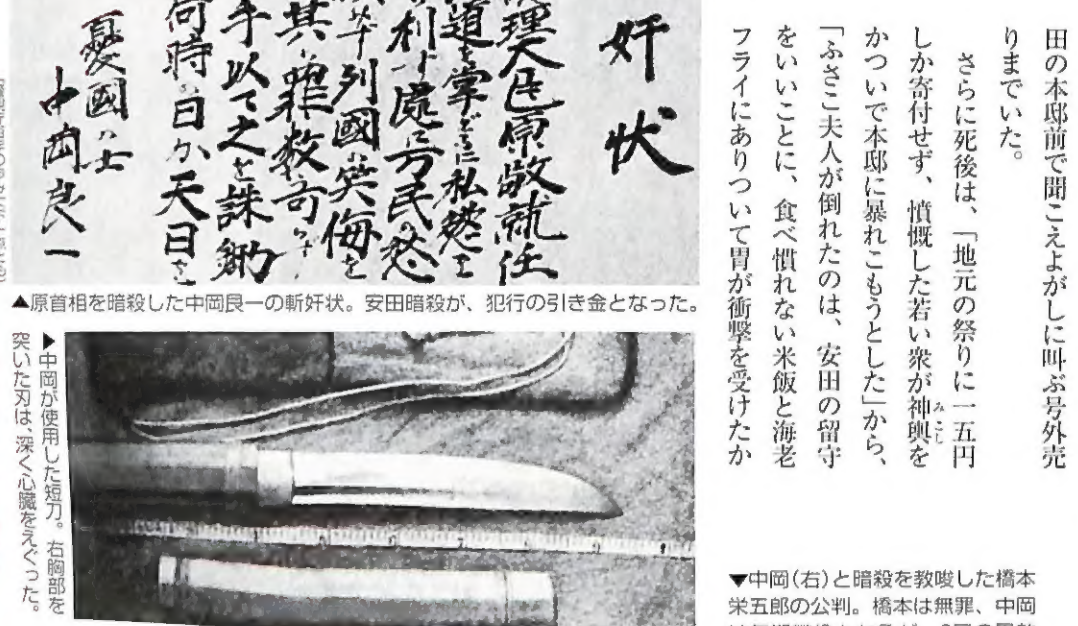 田の本邸前で聞こえよがしに叫ぶ号外売
りまでいた。
さらに死後は、「地元の祭りに一五円
しか寄付せず、憤慨した若い衆が神輿を
みこし
かついで本邸に暴れこもうとした」から、
「ふさこ夫人が倒れたのは、安田の留守
をいいことに、食べ慣れない米飯と海老
フライにありついて胃が衝撃を受けたか
奸状
理大臣原敬就任
道を掌どるに私慾を
利す處に万民の愁
列國の笑侮を
其の罪数
手以て之を誅鋤
何時の日か天日を
憂國の士
中岡良一
▲原首相を暗殺した中岡良一の斬奸状。安田暗殺が、犯行の引き金となった。
▶中岡が使用した短刀。右胸部を
突いた刃は、深く心臓をえぐった。
▼中岡(右)と暗殺を教唆した橋本
栄五郎の公判。橋本は無罪、中岡